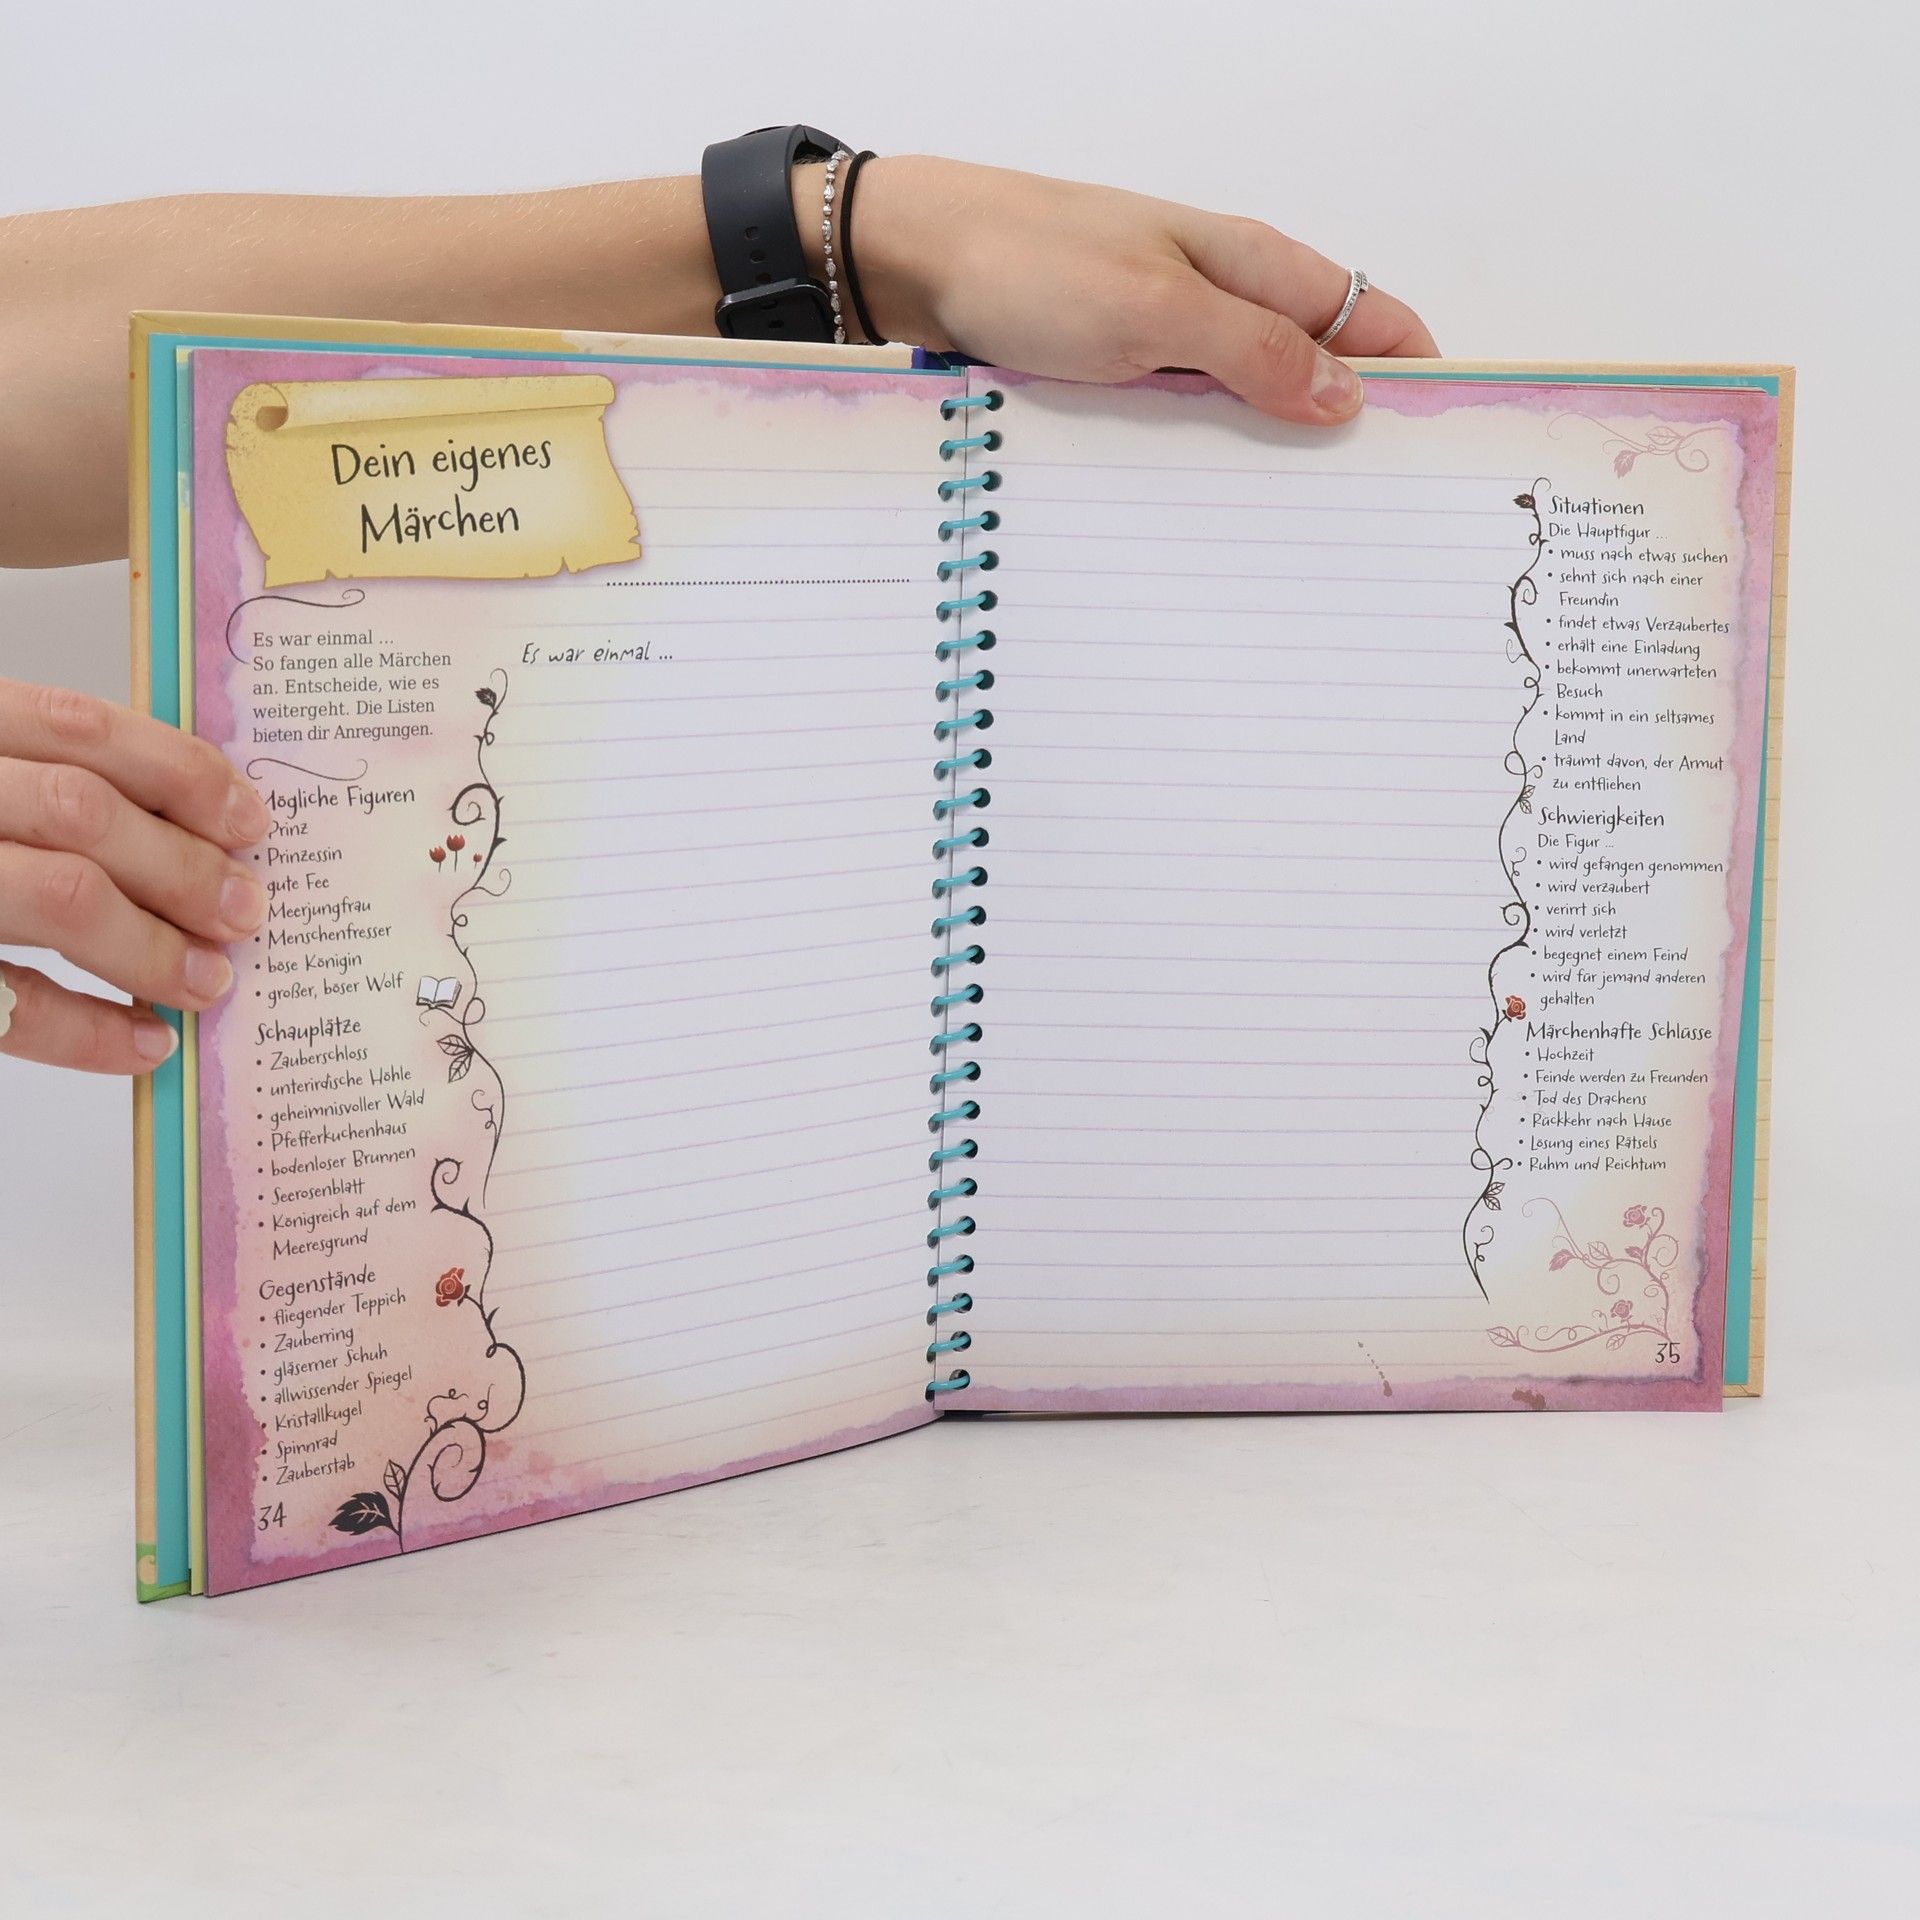 Dein eigenes
Märchen
Es war einmal ...
So fangen alle Märchen
an. Entscheide, wie es
weitergeht. Die Listen
bieten dir Anregungen.
Es war einmal ...
Mögliche Figuren
Prinz
• Prinzessin
gute Fee
Meerjungfrau
• Menschenfresser
• böse Königin
• großer, böser Wolf
Schauplätze
• Zauberschloss
• unterirdische Höhle
• geheimnisvoller Wald
• Pfefferkuchenhaus
• bodenloser Brunnen
• Seerosenblatt
• Königreich auf dem
Meeresgrund
Gegenstände
• fliegender Teppich
• Zauberring
• gläserner Schuh
• allwissender Spiegel
• Kristallkugel
• Spinnrad
• Zauberstab
34
Situationen
Die Hauptfigur ...
• muss nach etwas suchen
• sehnt sich nach einer
Freundin
• findet etwas Verzaubertes
• erhält eine Einladung
• bekommt unerwarteten
Besuch
• kommt in ein seltsames
Land
• träumt davon, der Armut
zu entfliehen
Schwierigkeiten
Die Figur ...
• wird gefangen genommen
• wird verzaubert
• verirrt sich
• wird verletzt
• begegnet einem Feind
• wird für jemand anderen
gehalten
Märchenhafte Schlüsse
• Hochzeit
• Feinde werden zu Freunden
• Tod des Drachens
• Rückkehr nach Hause
• Lösung eines Rätsels
• Ruhm und Reichtum
35